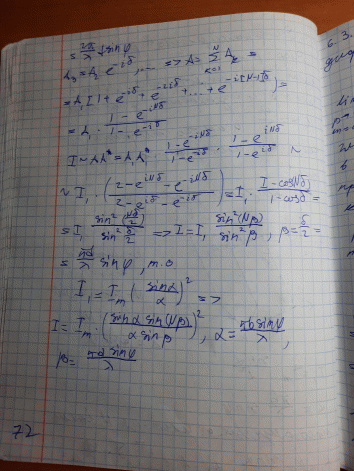 = 2π/λ d sinφ
A₃ = A₁ e^{-2iδ}, ... => A = Σ_{k=1}^{N} A_k =
= A₁ [1 + e^{-iδ} + e^{-2iδ} + ... + e^{-i(N-1)δ}] =
= A₁ · (1 - e^{-iNδ})/(1 - e^{-iδ})
I ~ AA* = A₁A₁* · (1 - e^{-iNδ})/(1 - e^{-iδ}) · (1 - e^{iNδ})/(1 - e^{iδ}) ~
~ I₁ · ((2 - e^{iNδ} - e^{-iNδ})/(2 - e^{iδ} - e^{-iδ})) = I₁ · (1 - cosNδ)/(1 - cosδ) =
= I₁ sin²(Nδ/2)/sin²(δ/2) => I = I₁ sin²(Nβ)/sin²β, β = δ/2 =
= πd/λ sinφ, т.о
I₁ = I_m (sinα/α)² =>
I = I_m · (sinα sin(Nβ)/(α sinβ))², α = πb sinφ/λ,
β = πd sinφ/λ
72
6.3.